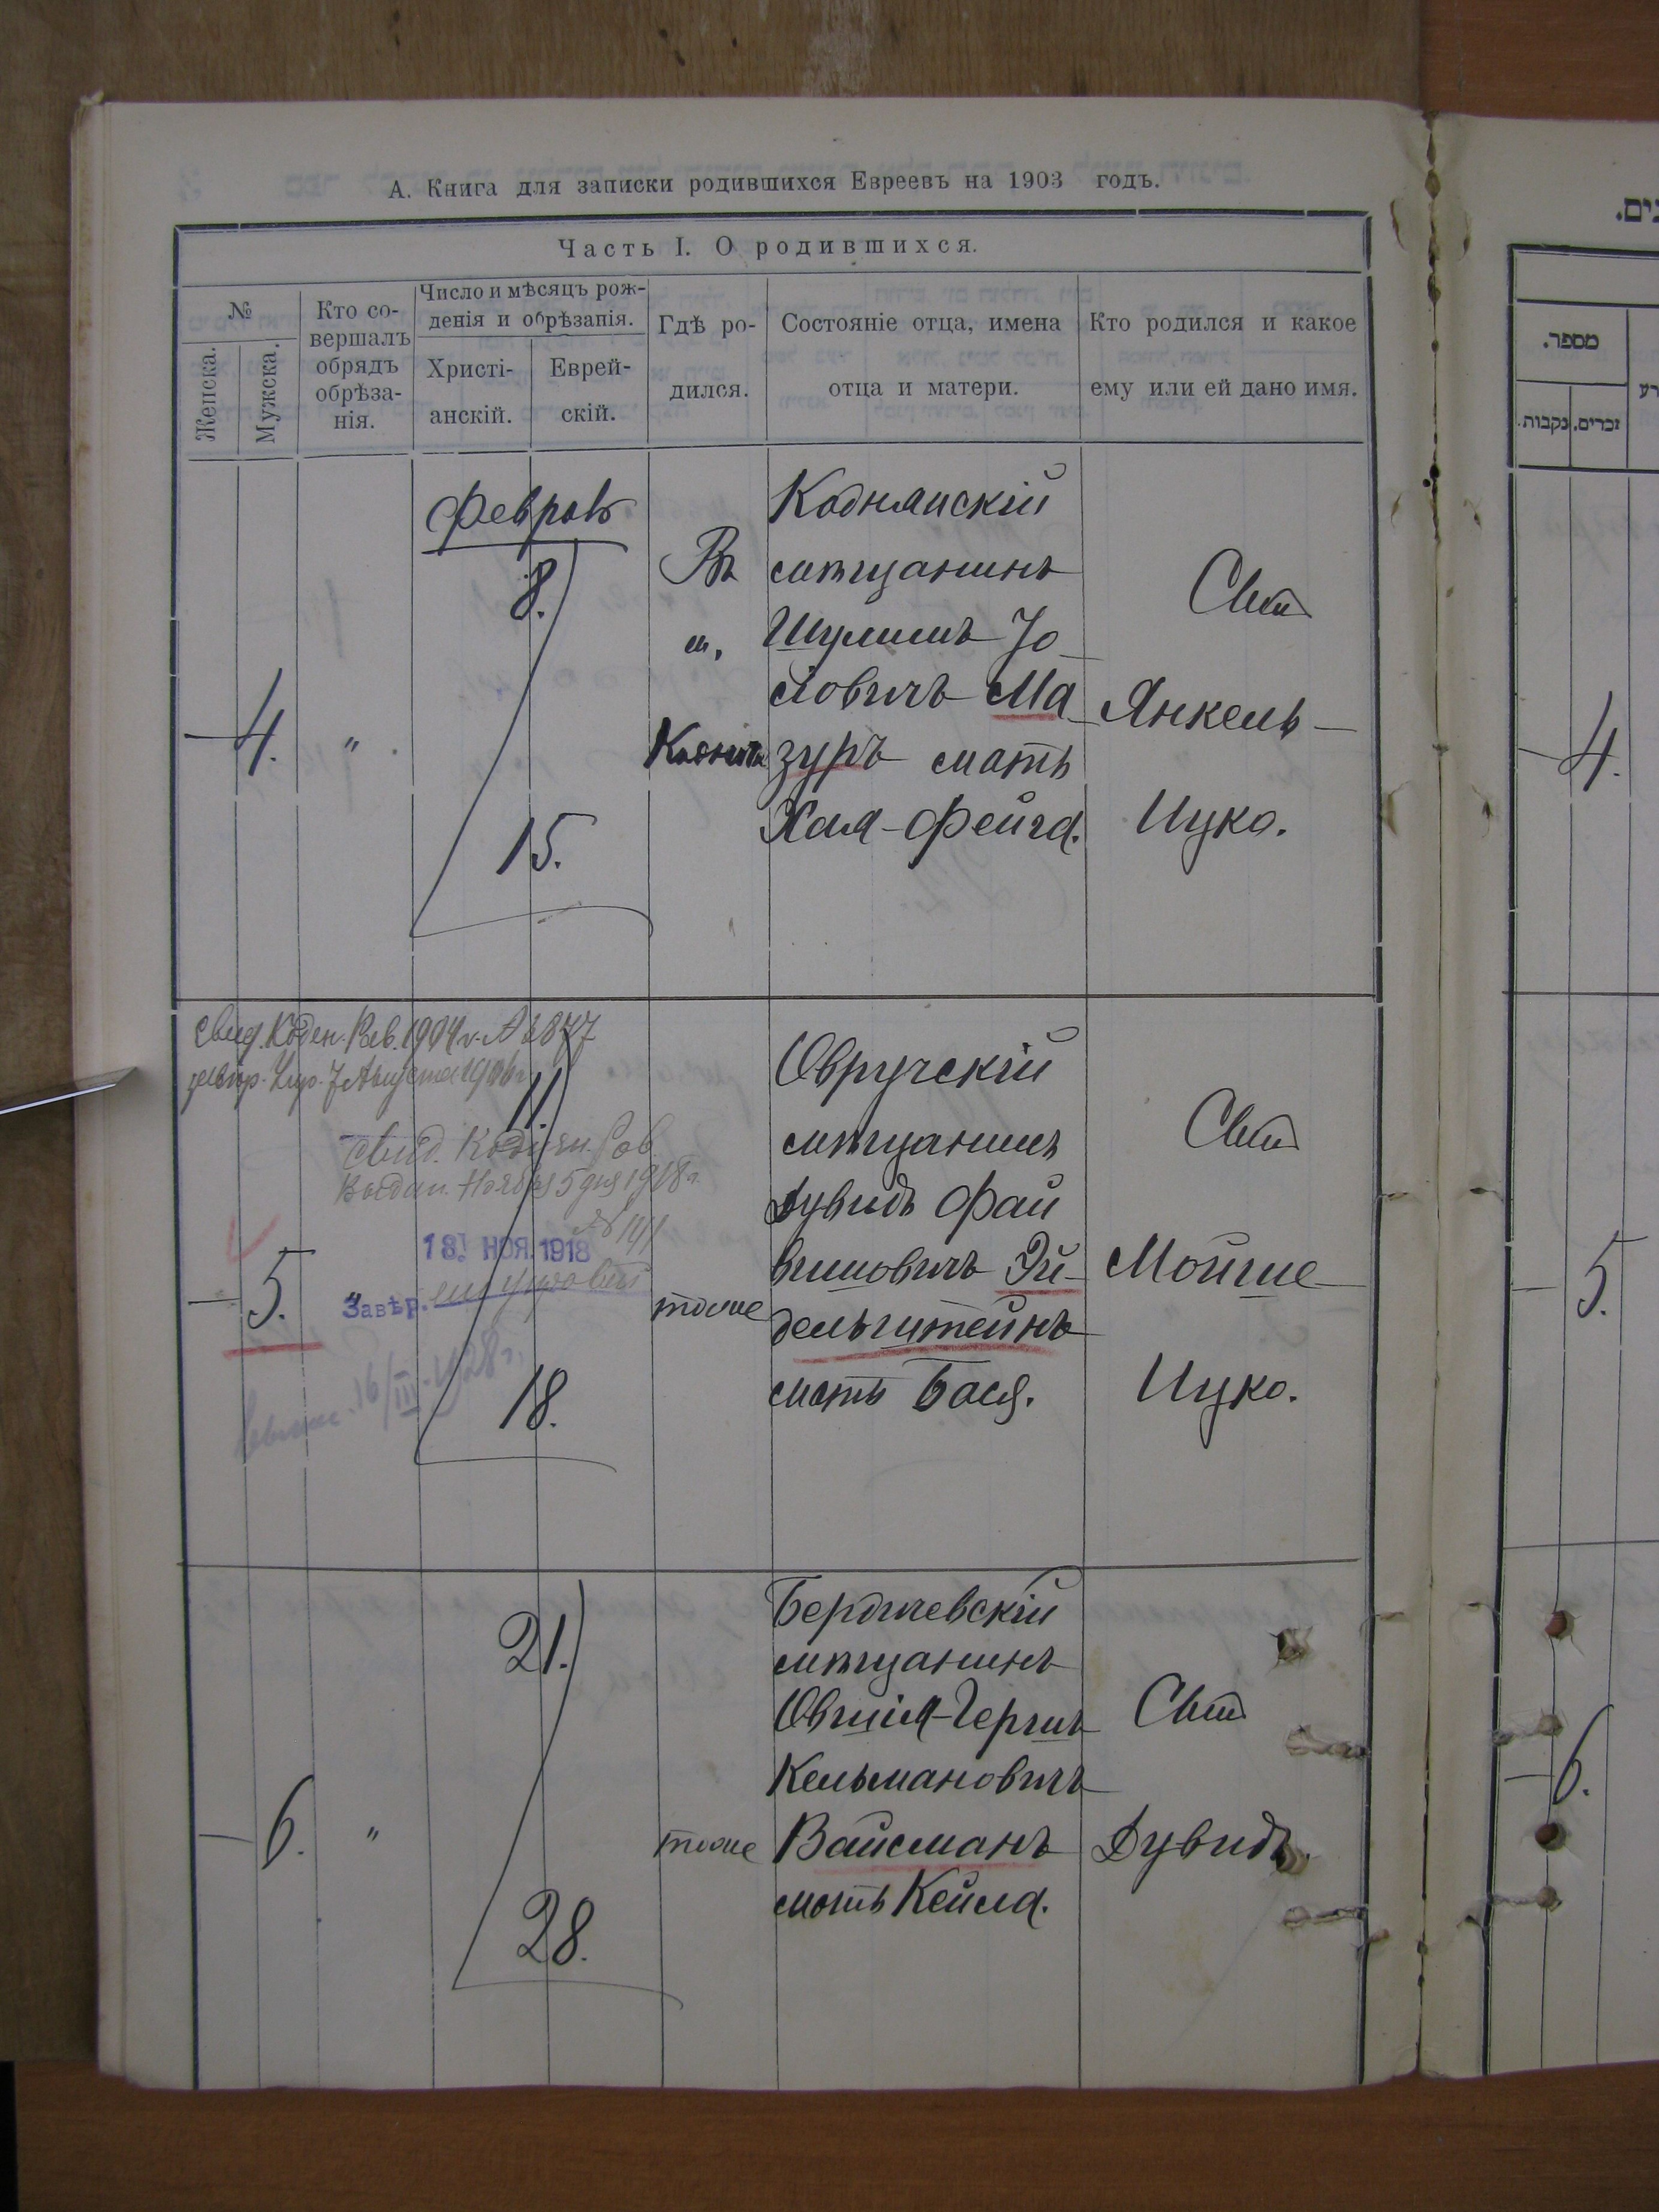 А. Книга для записки родившихся Евреевъ на 1903 годъ.
Часть I. О родившихся.
№
Женска.
Мужска.
Кто со-
вершалъ
обрядъ
обрѣза-
нія.
Число и мѣсяцъ рож-
денія и обрѣзанія.
Христі-
анскій.
Еврей-
скій.
Гдѣ ро-
дился.
Состояніе отца, имена
отца и матери.
Кто родился и какое
ему или ей дано имя.
4.
"
8.
15.
Въ
м.
Кодня
Коднянскій
мѣщанинъ
Шулимъ Іо-
сіовичъ Ма-
зуръ мать
Хая-Фейга.
Сынъ
Янкель-
Ицко.
Свид. Коден. Рав. 1904 г. № 877
7 Августа 1906 г.
свид. Кодням. Рав.
Ноября 5 дня 1918 г.
№ 141
18 НОЯ 1918
Завѣр.
16/III-1928 г.
5.
"
11.
18.
тоже
Овручскій
мѣщанинъ
Дувидъ Фай
вишовичъ Эй-
дельштейнъ
мать Бася.
Сынъ
Мойше-
Ицко.
6.
"
21.
28.
тоже
Бердичевскій
мѣщанинъ
Овшія-Гершъ
Кельмановичъ
Вайсманъ
мать Кейла.
Сынъ
Дувидъ.
מספר.
זכרים.
נקבות.
4.
5.
6.